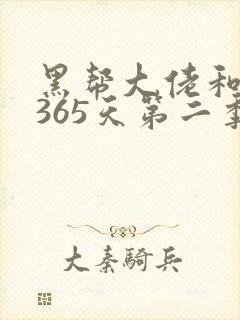 黑帮大佬和
365天第二季
大秦騎兵